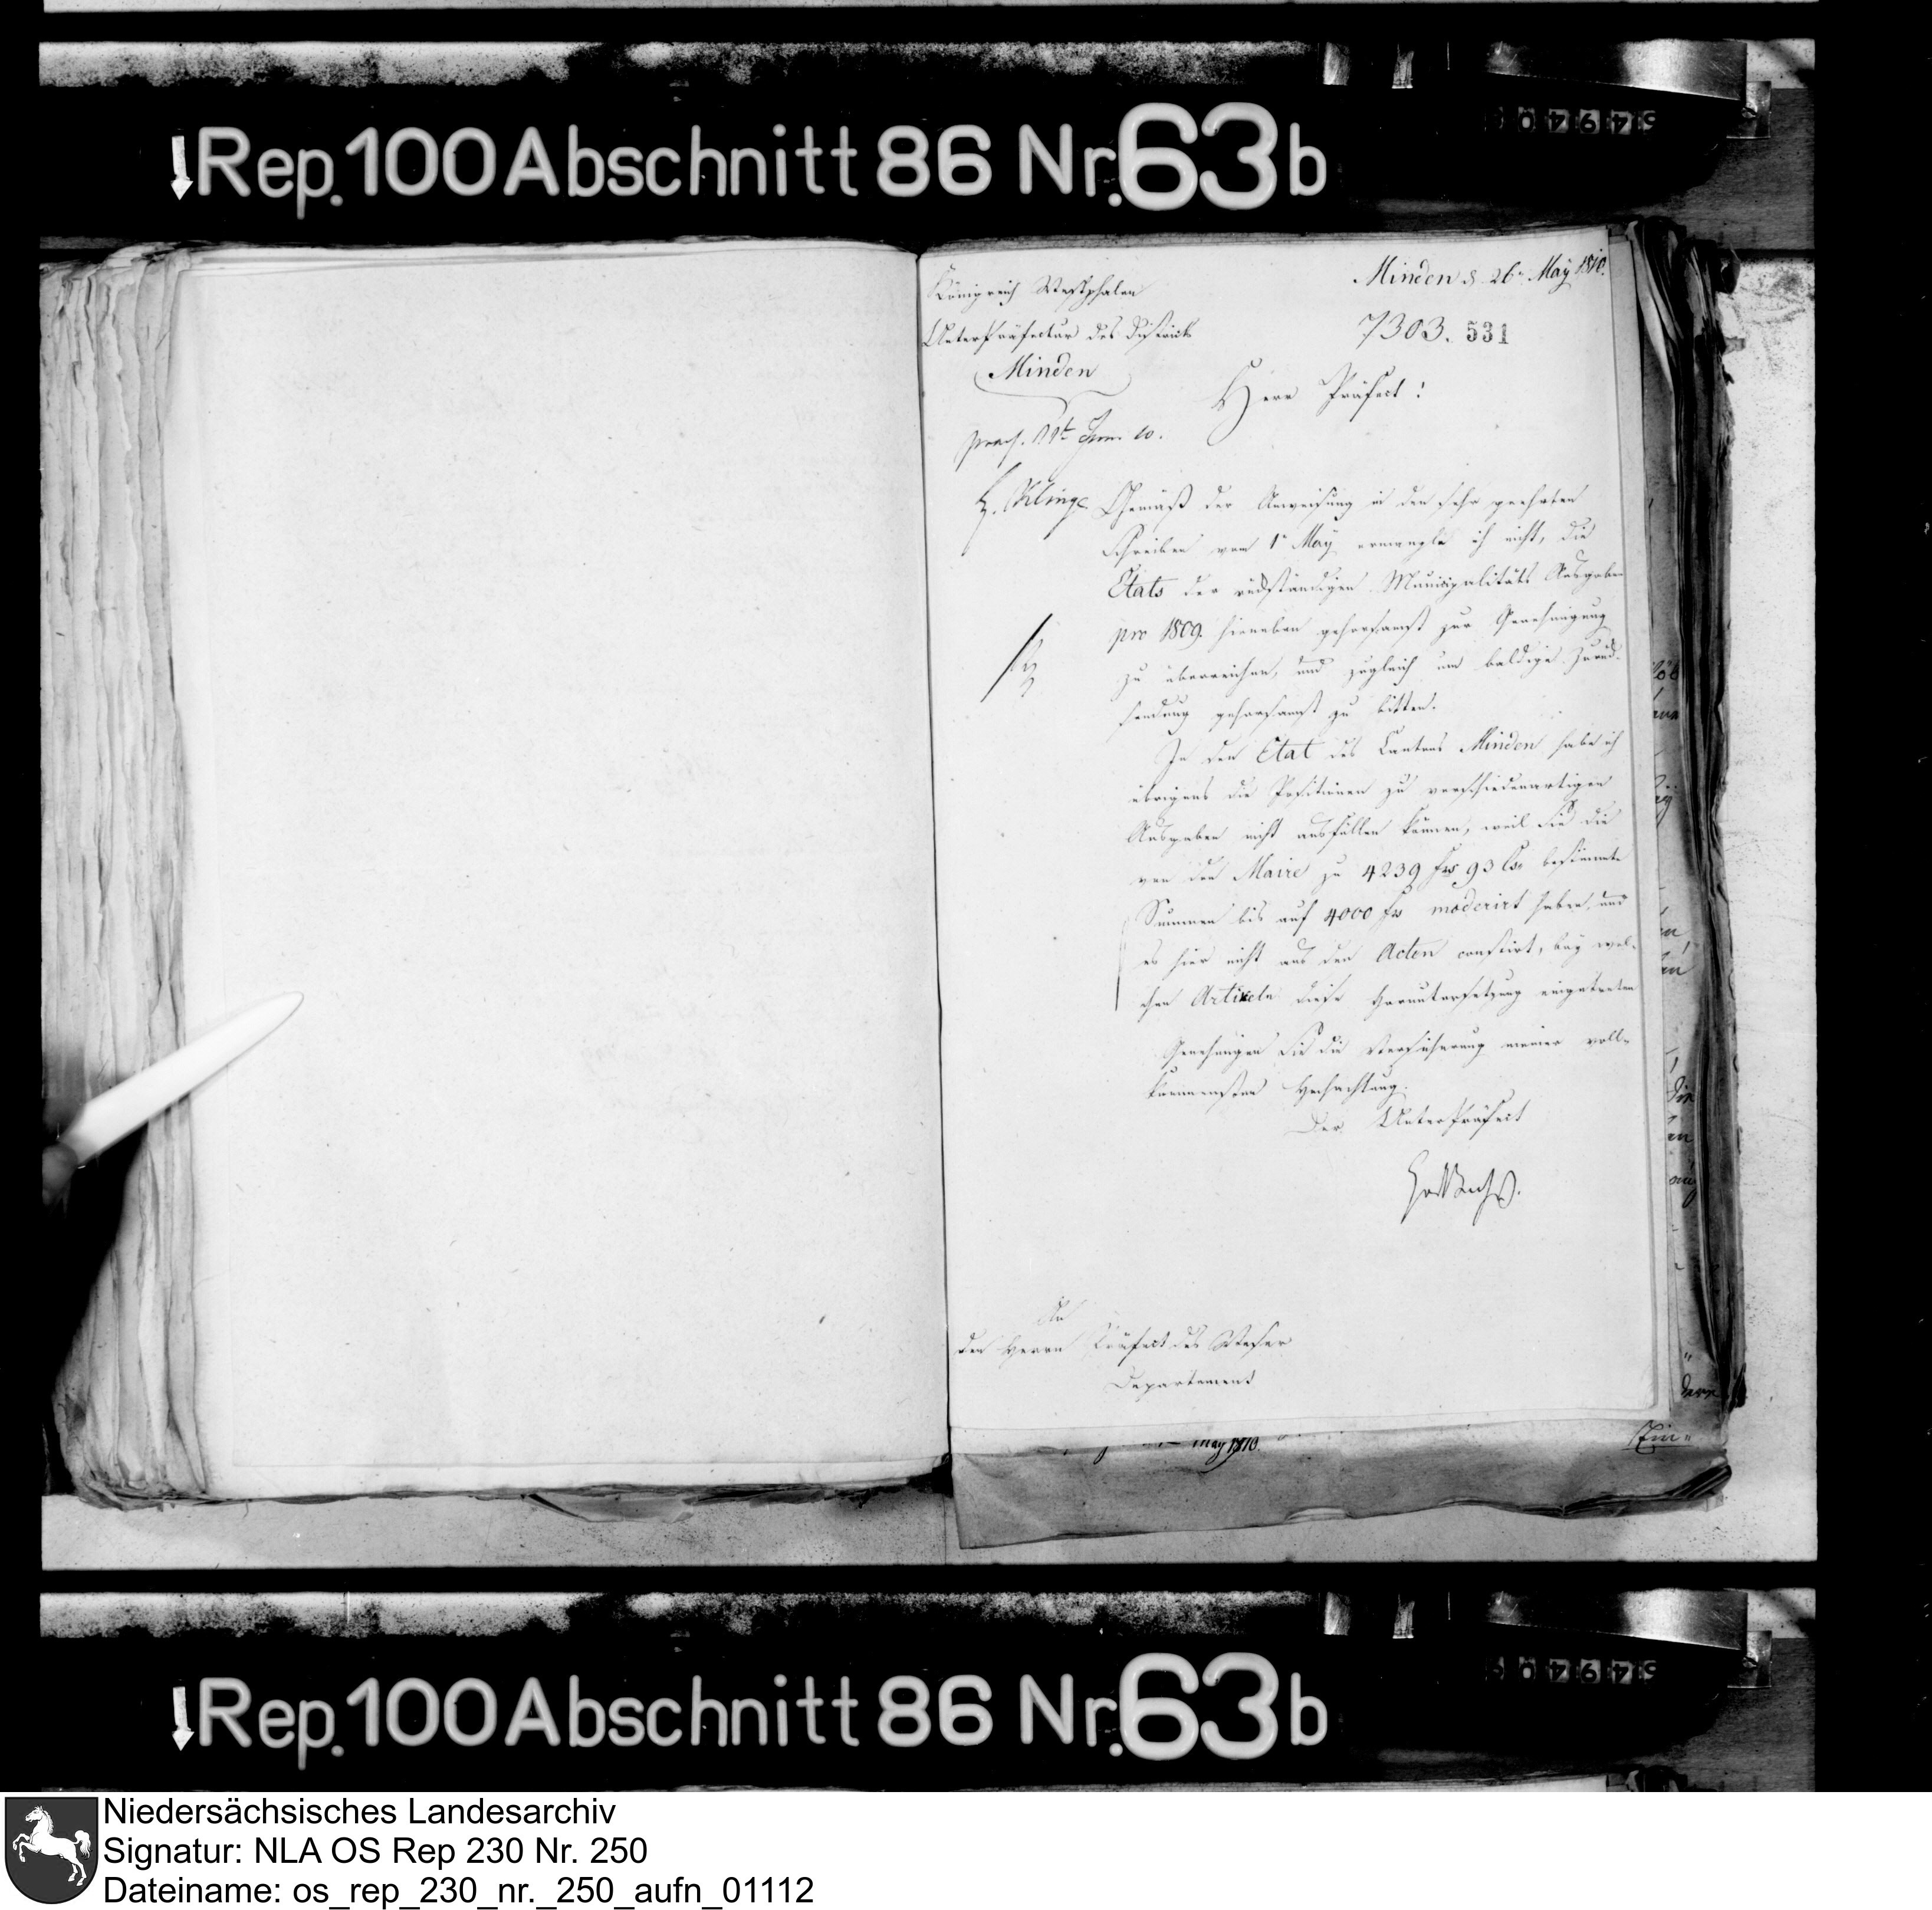 Rep. 100 Abschnitt 86 Nr. 63b
Königreich Westphalen
UnterPräfectur des Districts
Minden
Minden d. 26n May 1810.
7303. 531
Herr Präfect!
praes. 11t Jun. 10.
H. Klinge
Gemäß der Anweisung in den sehr geehrten
Schreiben vom 1n May ermangle ich nicht, die
Etats der rückständigen Municipalitäts Ausgaben
pro 1809. hieneben gehorsamst zur Genehmigung
zu überreichen, und zugleich um baldige Zurück-
sendung gehorsamst zu bitten.
In den Etat des Cantons Minden habe ich
übrigens die Positionen zu verschiedenartigen
Ausgaben nicht ausfüllen können, weil Sie die
von den Maire zu 4239 frs 93 Cs bestimmte
Summen bis auf 4000 frs moderirt haben, und
es hier nicht aus den Acten constirt, bey wel-
chen Artikeln diese Heruntersetzung eingetreten
Genehmigen Sie die Versicherung meiner voll-
kommensten Hochachtung.
Der UnterPräfect
An
den Herrn Präfect des Weser
Departement
May 1810.
Rep. 100 Abschnitt 86 Nr. 63b
Niedersächsisches Landesarchiv
Signatur: NLA OS Rep 230 Nr. 250
Dateiname: os_rep_230_nr._250_aufn_01112